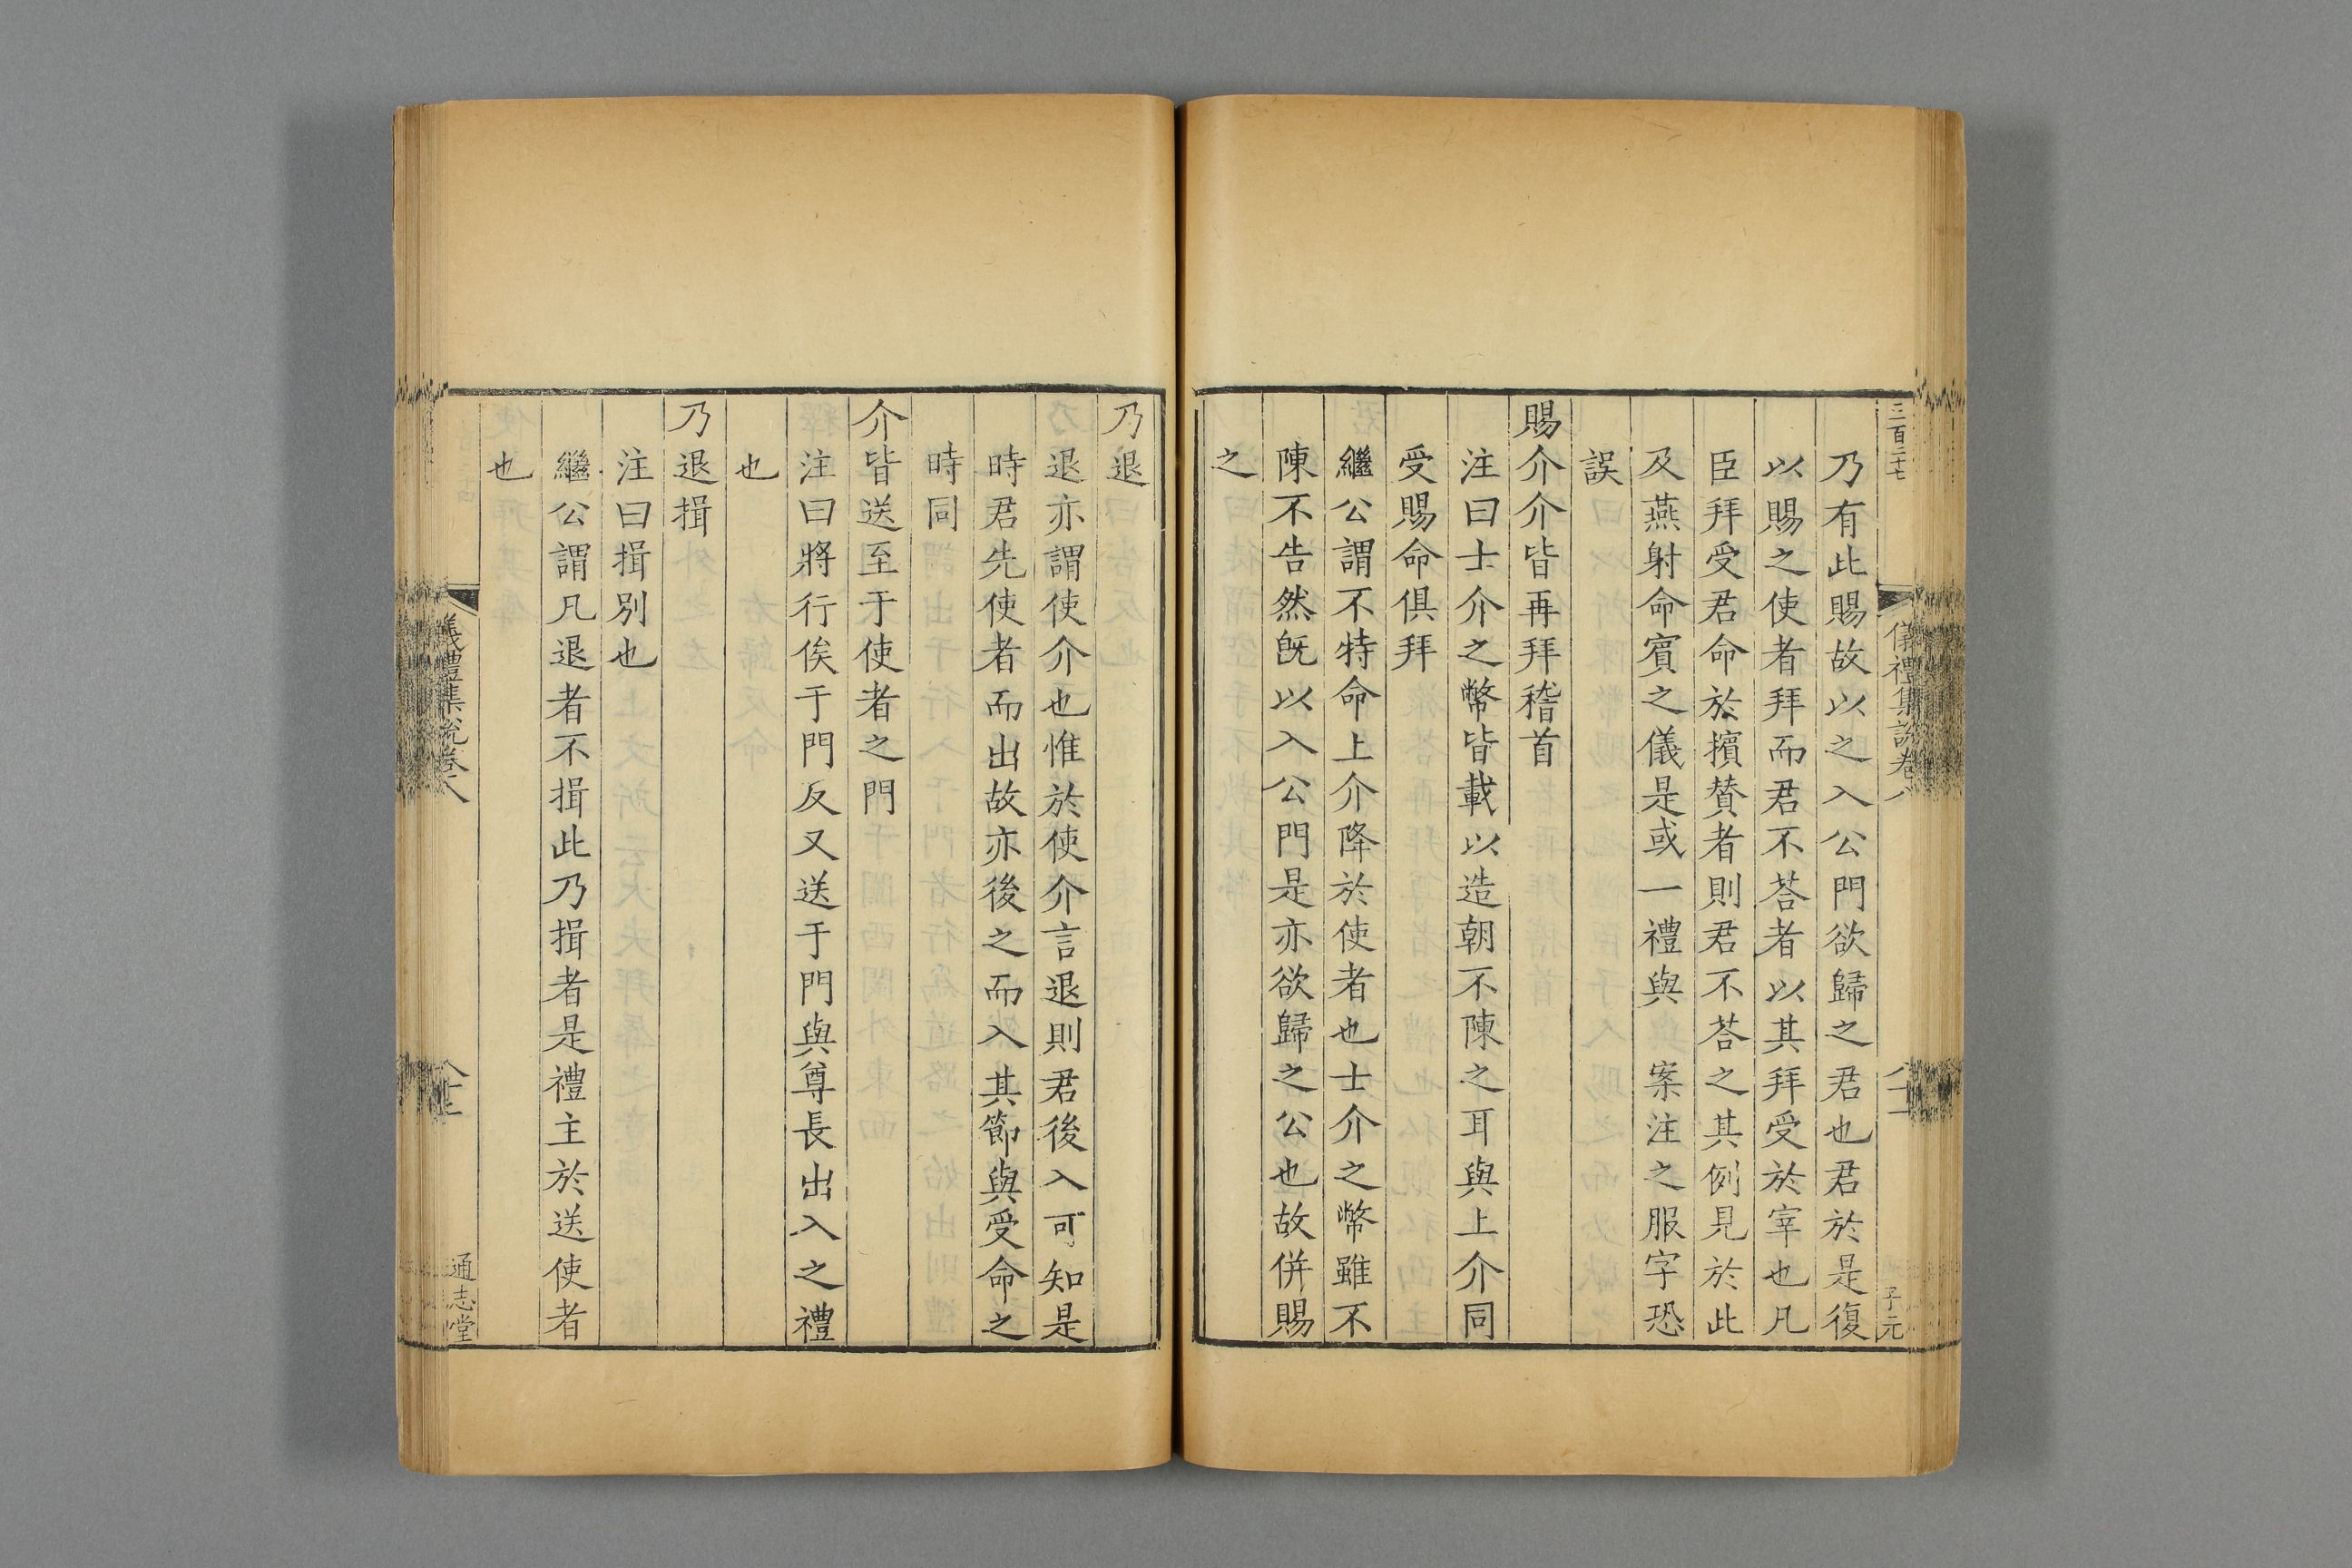 三百二十七
子元
儀禮集說卷八
乃有此賜故以之入公門欲歸之君也君於是復
以賜之使者拜而君不荅者以其拜受於宰也凡
臣拜受君命於擯贊者則君不荅之其例見於此
及燕射命賔之儀是或一禮與 案注之服字恐
誤
賜介介皆再拜稽首
注曰士介之幣皆載以造朝不陳之耳與上介同
受賜命俱拜
繼公謂不特命上介降於使者也士介之幣雖不
陳不告然旣以入公門是亦欲歸之公也故併賜
之
乃退
退亦謂使介也惟於使介言退則君後入可知是
時君先使者而出故亦後之而入其節與受命之
時同
介皆送至于使者之門
注曰將行俟于門反又送于門與尊長出入之禮
也
乃退揖
注曰揖別也
繼公謂凡退者不揖此乃揖者是禮主於送使者
也
儀禮集說卷八
通志堂